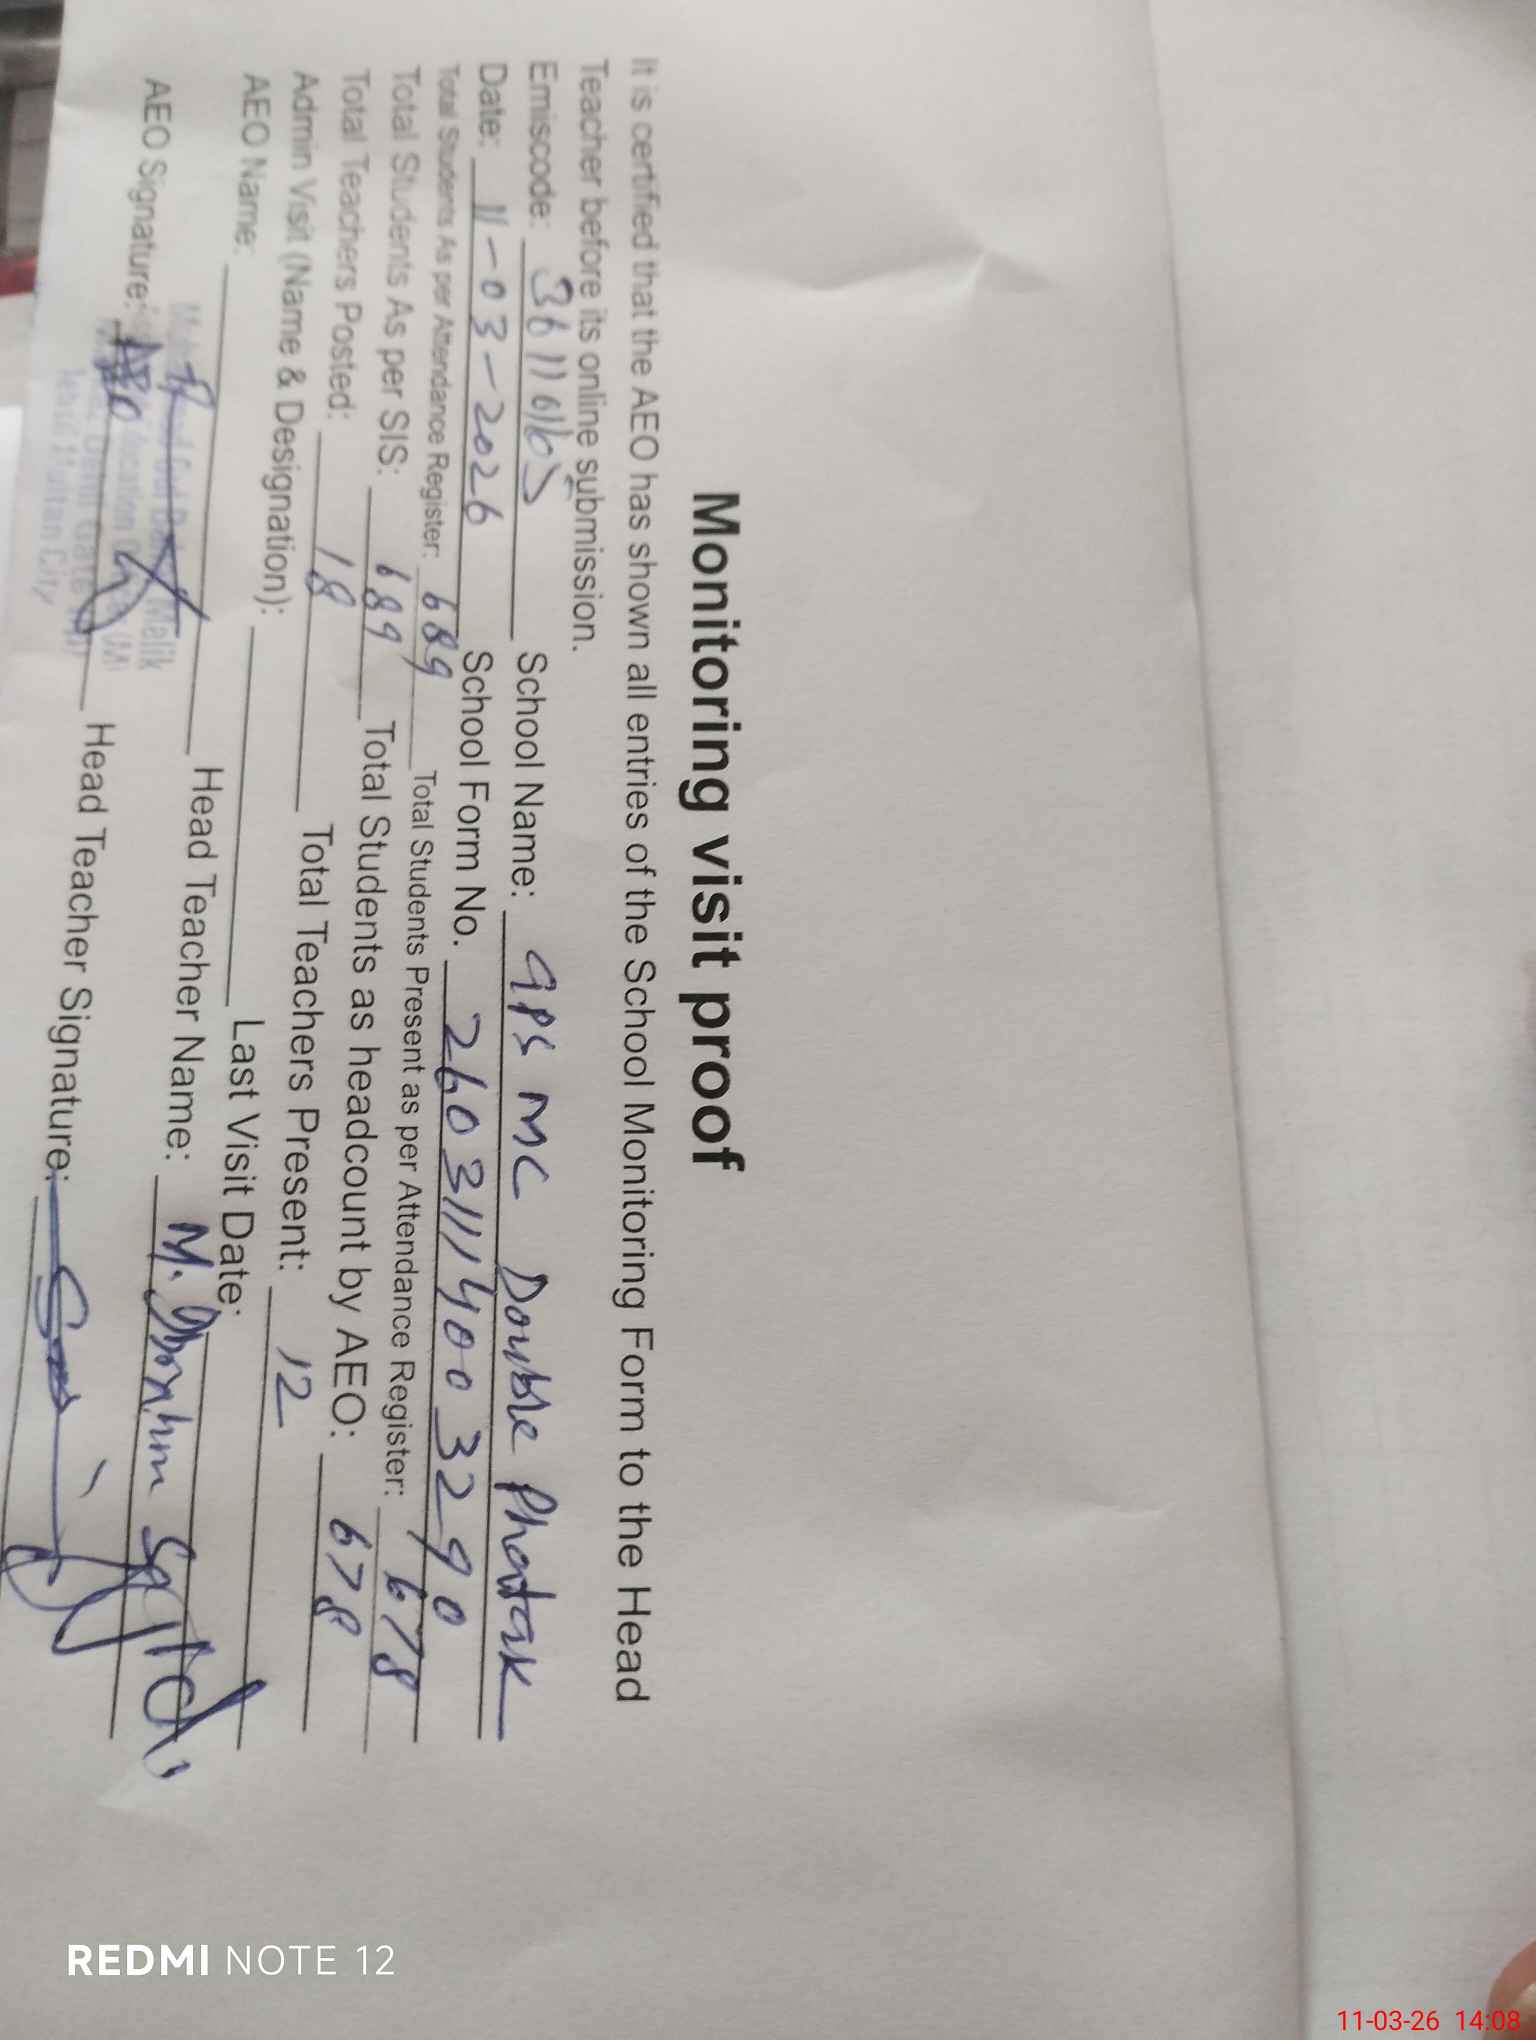 Monitoring visit proof
It is certified that the AEO has shown all entries of the School Monitoring Form to the Head
Teacher before its online submission.
Emiscode: School Name: GPS MC Double Phatak
Date: 11-03-2026 School Form No. 26031114003290
Total Students As per Attendance Register: 689 Total Students Present as per Attendance Register: 678
Total Students As per SIS: 689 Total Students as headcount by AEO: 678
Total Teachers Posted: 18 Total Teachers Present: 12
Admin Visit (Name & Designation): Last Visit Date:
AEO Name: Head Teacher Name: M.
Malik
AEO Signature: Head Teacher Signature:
Multan City
REDMI NOTE 12
11-03-26 14:08